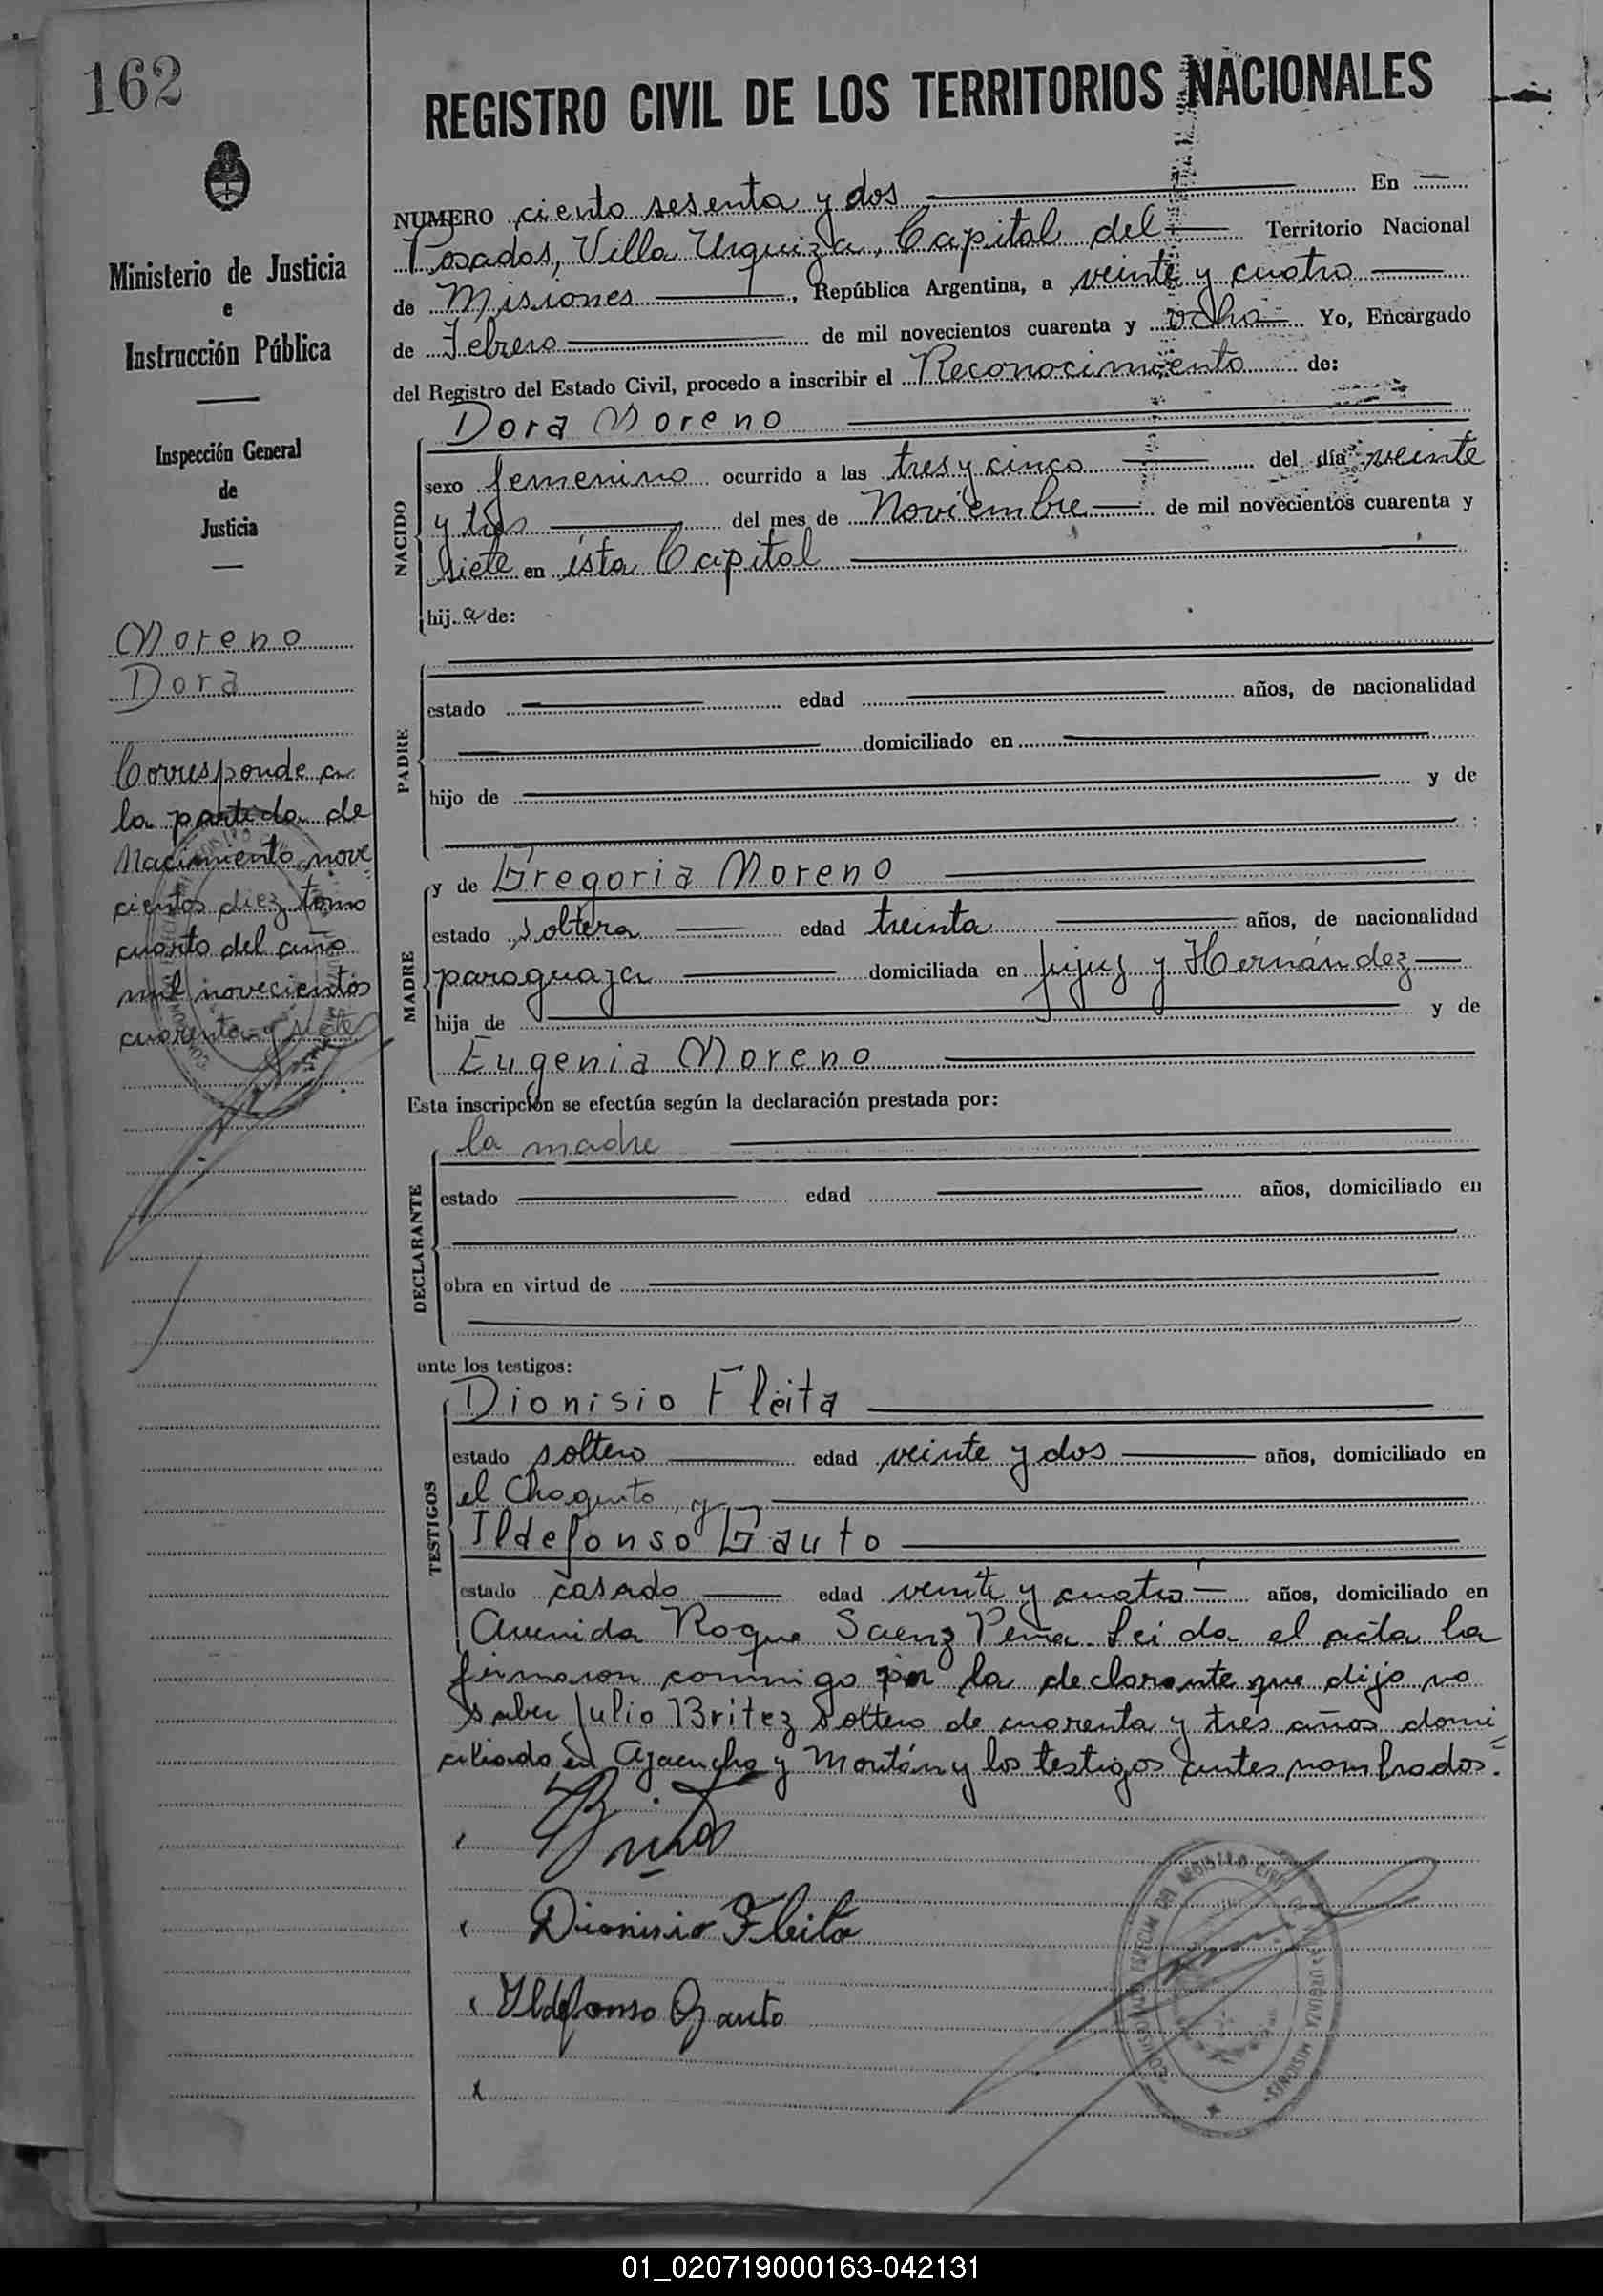 162
REGISTRO CIVIL DE LOS TERRITORIOS NACIONALES
Ministerio de Justicia
e
Instrucción Pública
Inspección General
de
Justicia
Moreno
Dora
Corresponde a
la partida de
Nacimiento nove
cientos diez tomo
cuarto del año
mil novecientos
cuarenta y siete
NUMERO ciento sesenta y dos En
Posadas, Villa Urquiza, Capital del Territorio Nacional
de Misiones, República Argentina, a veinte y cuatro
de Febrero de mil novecientos cuarenta y ocho Yo, Encargado
del Registro del Estado Civil, procedo a inscribir el Reconocimiento de:
Dora Moreno
NACIDO
sexo femenino ocurrido a las tres y cinco del día veinte
y tres del mes de Noviembre de mil novecientos cuarenta y
siete en ésta Capital
hij a de:
PADRE
estado edad años, de nacionalidad
domiciliado en
hijo de y de
MADRE
y de Gregoria Moreno
estado soltera edad treinta años, de nacionalidad
paraguaya domiciliada en Jujuy y Hernández
hija de y de
Eugenia Moreno
Esta inscripción se efectúa según la declaración prestada por:
la madre
DECLARANTE
estado edad años, domiciliado en
obra en virtud de
ante los testigos:
TESTIGOS
Dionisio Fleita
estado soltero edad veinte y dos años, domiciliado en
el Chaquito, y
Ildefonso Gauto
estado casado edad veinte y cuatro años, domiciliado en
Avenida Roque Saenz Peña. Leida el acta la
firmaron conmigo por la declarante que dijo no
saber Julio Britez soltero de cuarenta y tres años domi
ciliado en Ayacucho y y los testigos antes nombrados.
Dionisio Fleita
Ildefonso Gauto
01_020719000163-042131